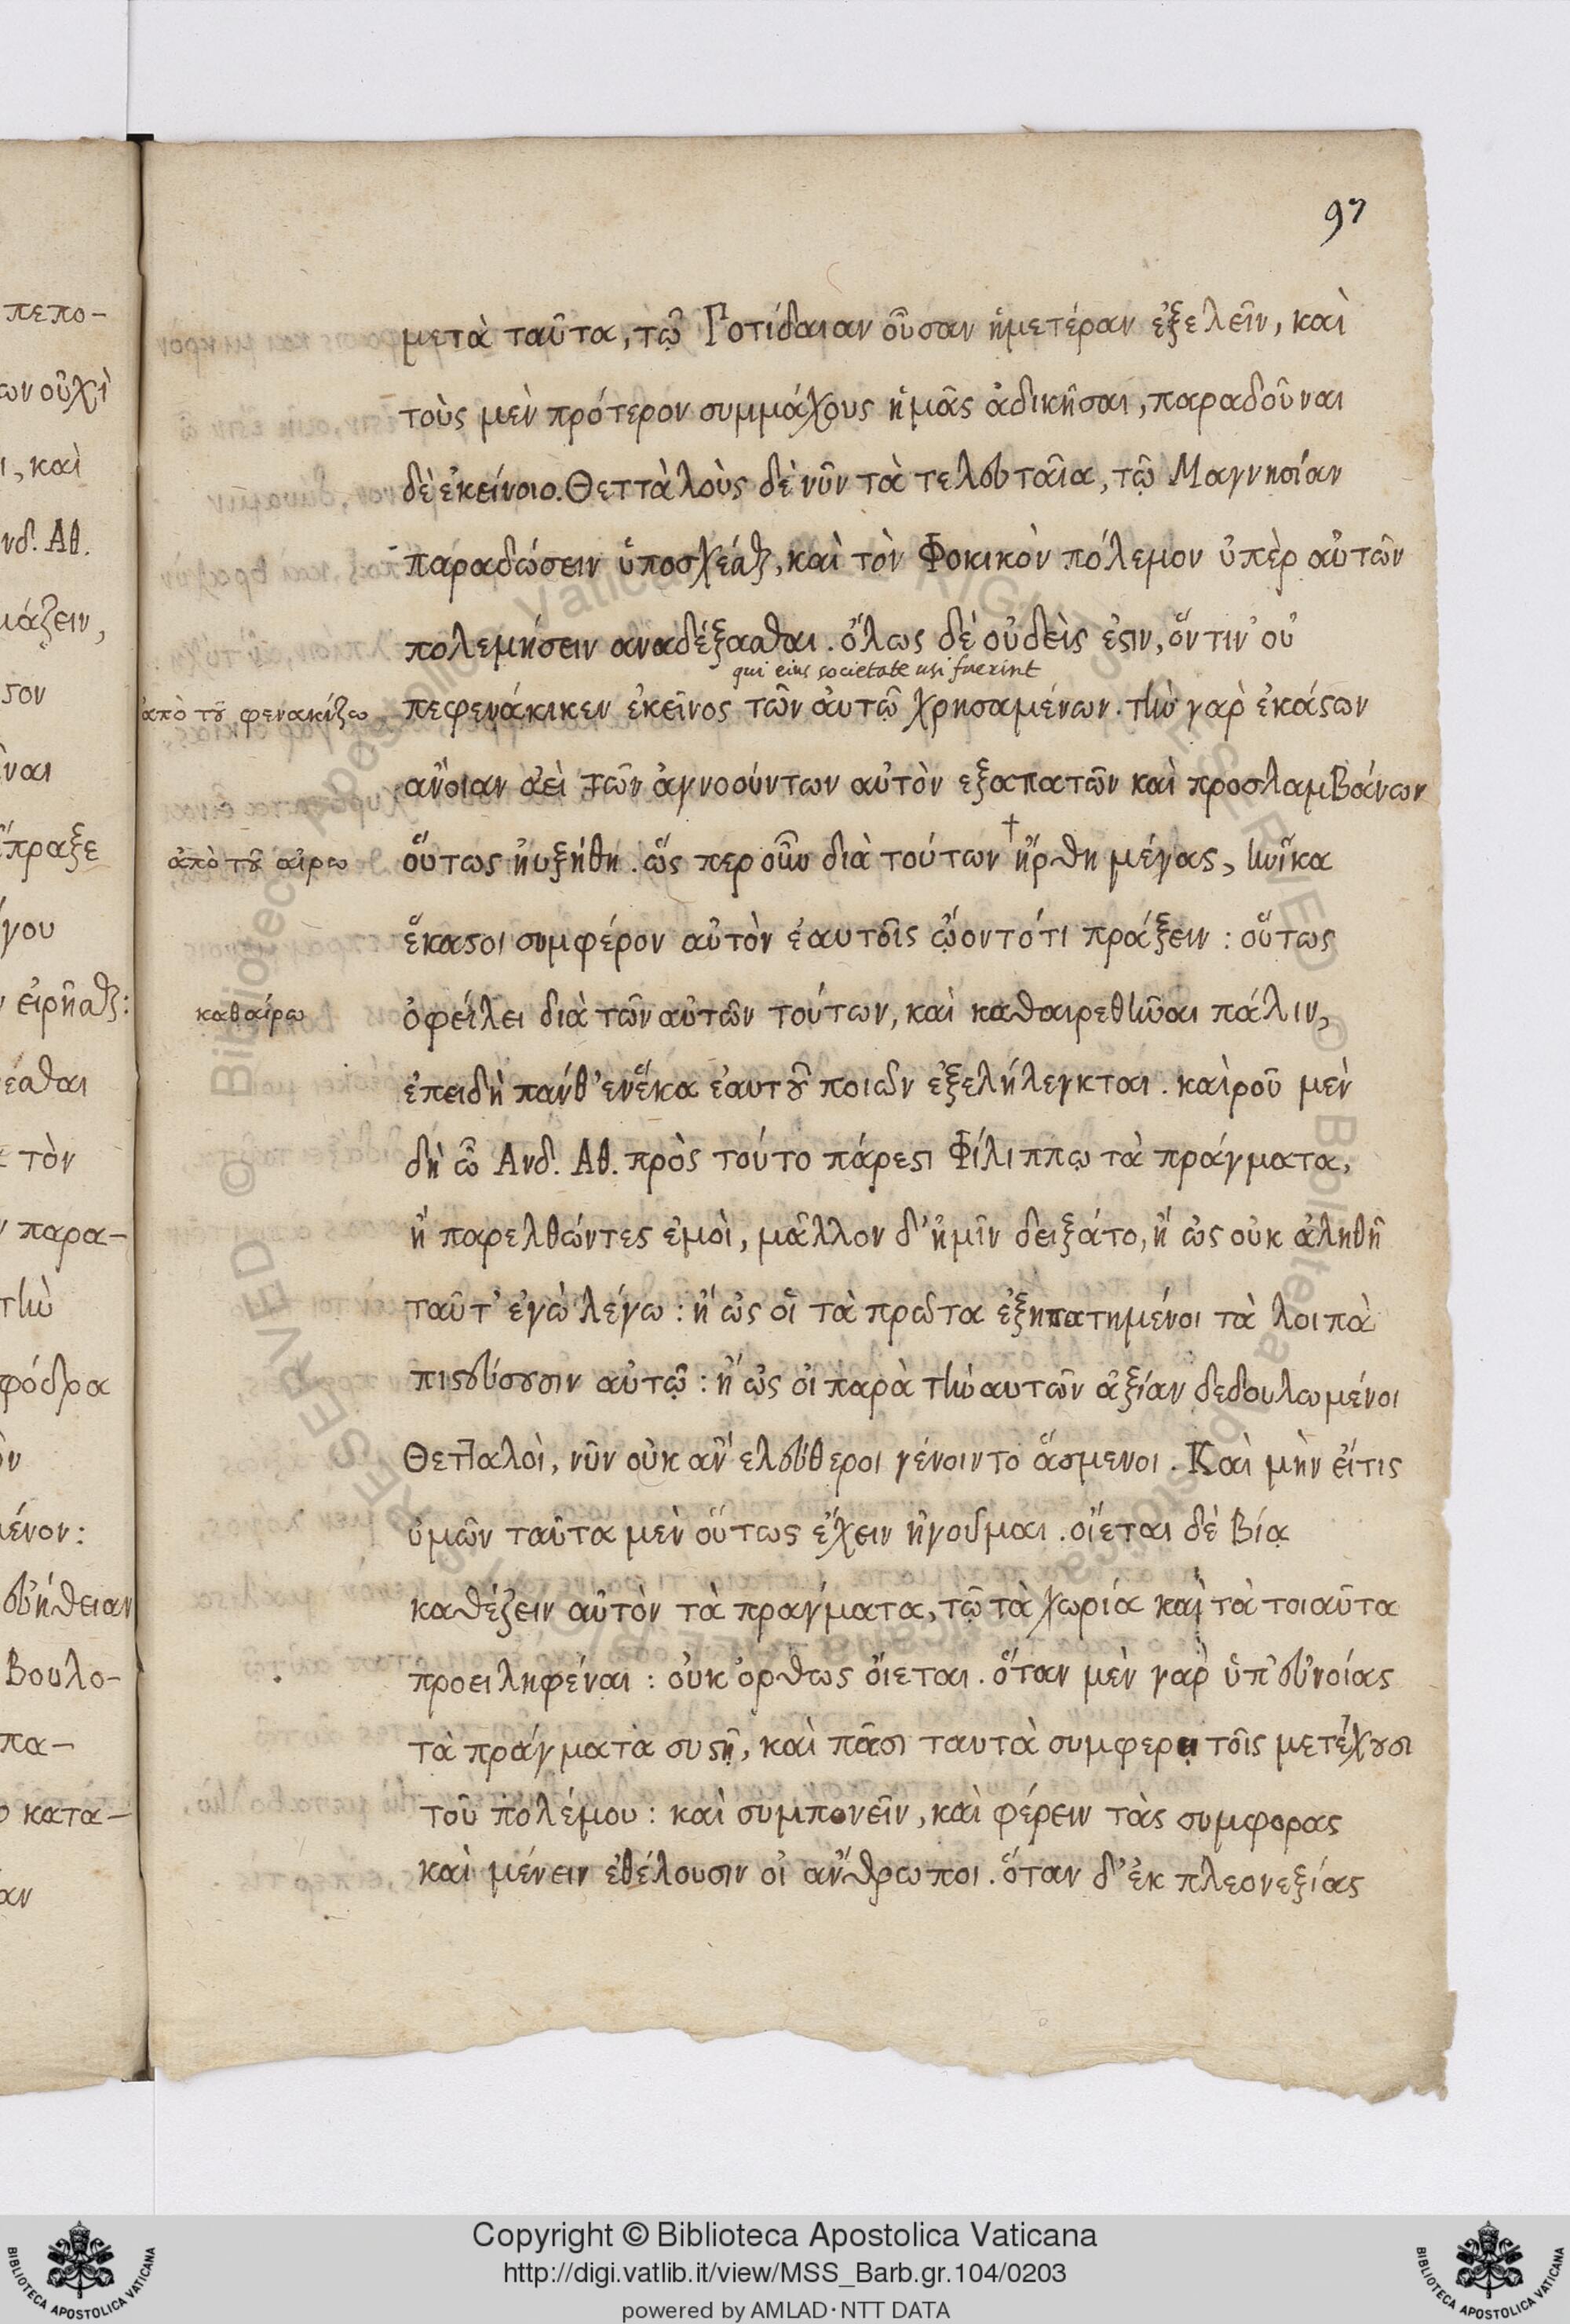 97
πεπο-
ων οὐχὶ
ι, καὶ
νδ. Αθ.
μάζειν,
ϛον
ῖναι
ἔπραξε
γου
ν εἰρῆσθαι:
έσθαι
τὸν
ν παρα-
τὴν
φόδρα
μένον:
εὐήθειαν
Βουλο-
πα-
κατα-
αν
μετὰ ταῦτα, τῷ Ποτίδαιαν οὖσαν ἡμετέραν ἐξελεῖν, καὶ
τοὺς μὲν πρότερον συμμάχους ἡμᾶς ἀδικῆσαι, παραδοῦναι
δὲ ἐκείνοιο. Θετταλοὺς δὲ νῦν τὰ τελευταῖα, τῷ Μαγνησίαν
παραδώσειν ὑποσχέσθαι, καὶ τὸν Φοκικὸν πόλεμον ὑπὲρ αὐτῶν
πολεμήσειν αναδέξασθαι. ὅλως δὲ οὐδεὶς ἐϛιν, ὅντιν' οὐ
qui eius societate usi fuerint
ἀπὸ τοῦ φενακίζω
πεφενάκικεν ἐκεῖνος τῶν ἀυτῷ χρησαμένων. τὴν γαρ ἑκάϛων
ἄνοιαν ἀεὶ τῶν ἀγνοούντων αὐτὸν εξαπατῶν καὶ προσλαμβάνων
ἀπὸ τοῦ αἰρω
οὕτως ἠυξήθη. ὥς περ οὖν διὰ τούτων † ἤρθη μέγας, ἡνίκα
ἕκαϛοι συμφέρον αὐτὸν ἑαυτοῖς ᾤοντό τι πράξειν: οὕτως
καθαίρω
ὀφείλει διὰ τῶν αὐτῶν τούτων, καὶ καθαιρεθῆναι πάλιν,
ἐπειδὴ πάνθ' ενἕκα ἑαυτοῦ ποιῶν ἐξελήλεγκται. καὶροῦ μὲν
δὴ ὦ Ανδ. Αθ. πρὸς τούτο πάρεϛι Φίλιππῳ τὰ πράγματα,
ἢ παρελθώντες ἐμοὶ, μᾶλλον δ' ἡμῖν δειξάτο, ἢ ὡς οὐκ ἀληθῆ
ταῦτ' ἐγὼ λέγω: ἢ ὡς οἵ τὰ πρῶτα ἐξηπατημένοι τὰ λοιπὰ
πιϛεύσουσιν αὐτῷ: ἢ ὡς οἱ παρὰ τὴν αυτῶν ἀξίαν δεδουλωμένοι
Θετταλοὶ, νῦν οὐκ ἂν ελεύθεροι γένοιντο ἅσμενοι. Καὶ μὴν εἴτις
ὑμῶν ταῦτα μὲν οὕτως ἔχειν ἡγοῦμαι. οἴεται δὲ βίᾳ
καθέξειν αὐτὸν τὰ πραγματα, τῷ τὰ χωρία καὶ τὰ τοιαῦτα
προειληφέναι: οὐκ ὀρθως ὄιεται. ὅταν μὲν γαρ ὑπ' εὐνοίας
τὰ πράγματὰ συϛῇ, καὶ πᾶσι ταυτὰ συμφερῃ τοῖς μετέχουσι
τοῦ πολέμου: καὶ συμπονεῖν, καὶ φέρειν τὰς συμφορας
καὶ μένειν ἐθέλουσιν οἱ ἄνθρωποι. ὅταν δ' ἐκ πλεονεξίας
Copyright © Biblioteca Apostolica Vaticana
http://digi.vatlib.it/view/MSS_Barb.gr.104/0203
powered by AMLAD·NTT DATA